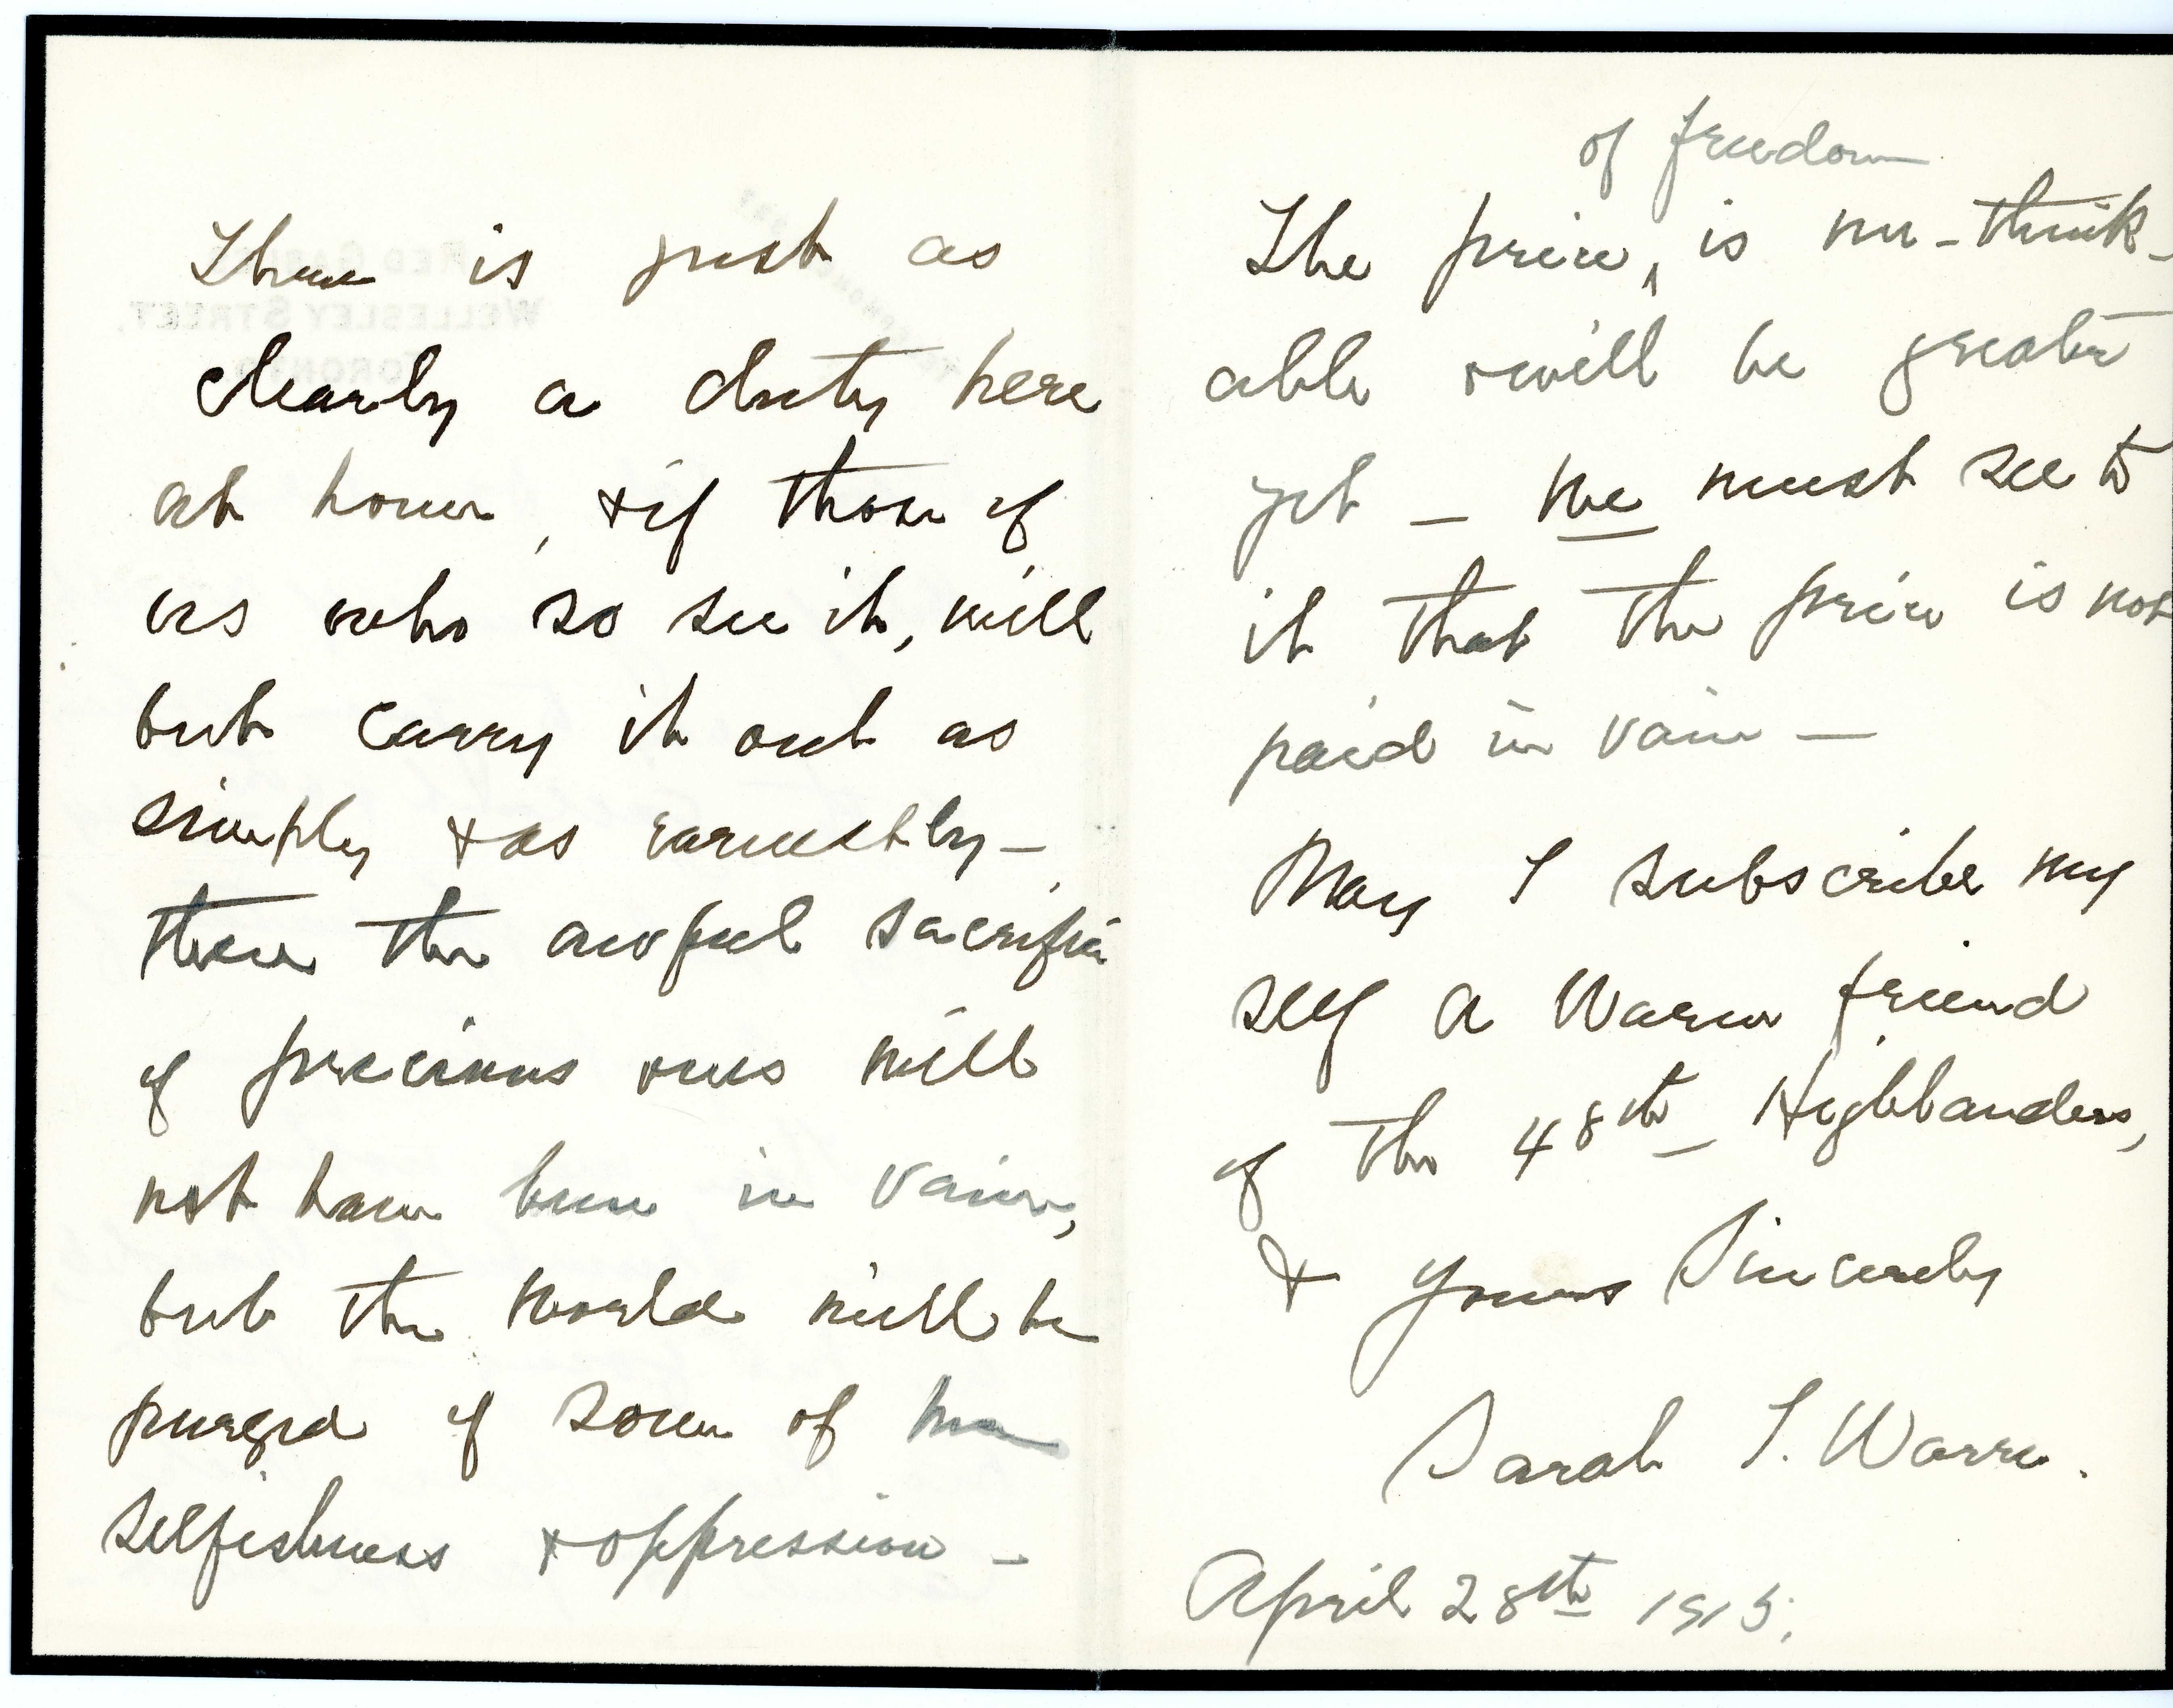 There is just as
clearly a duty here
at home, & if those of
us who so see it, will
but carry it out as
simply & as earnestly –
then the awful sacrifice
of precious ones will
not have been in vain,
but the world will be
purged of some of her
selfishness & oppression –
of freedom
The price ‸ is un-think-
able & will be greater
yet – we must see to
it that the price is not
paid in vain —
May I subscribe my
self a warm friend
of the 48th Highlanders,
& Yours Sincerely
Sarah T. Warren.
April 28th 1915.
RED GABLES
WELLESLEY STREET,
TORONTO